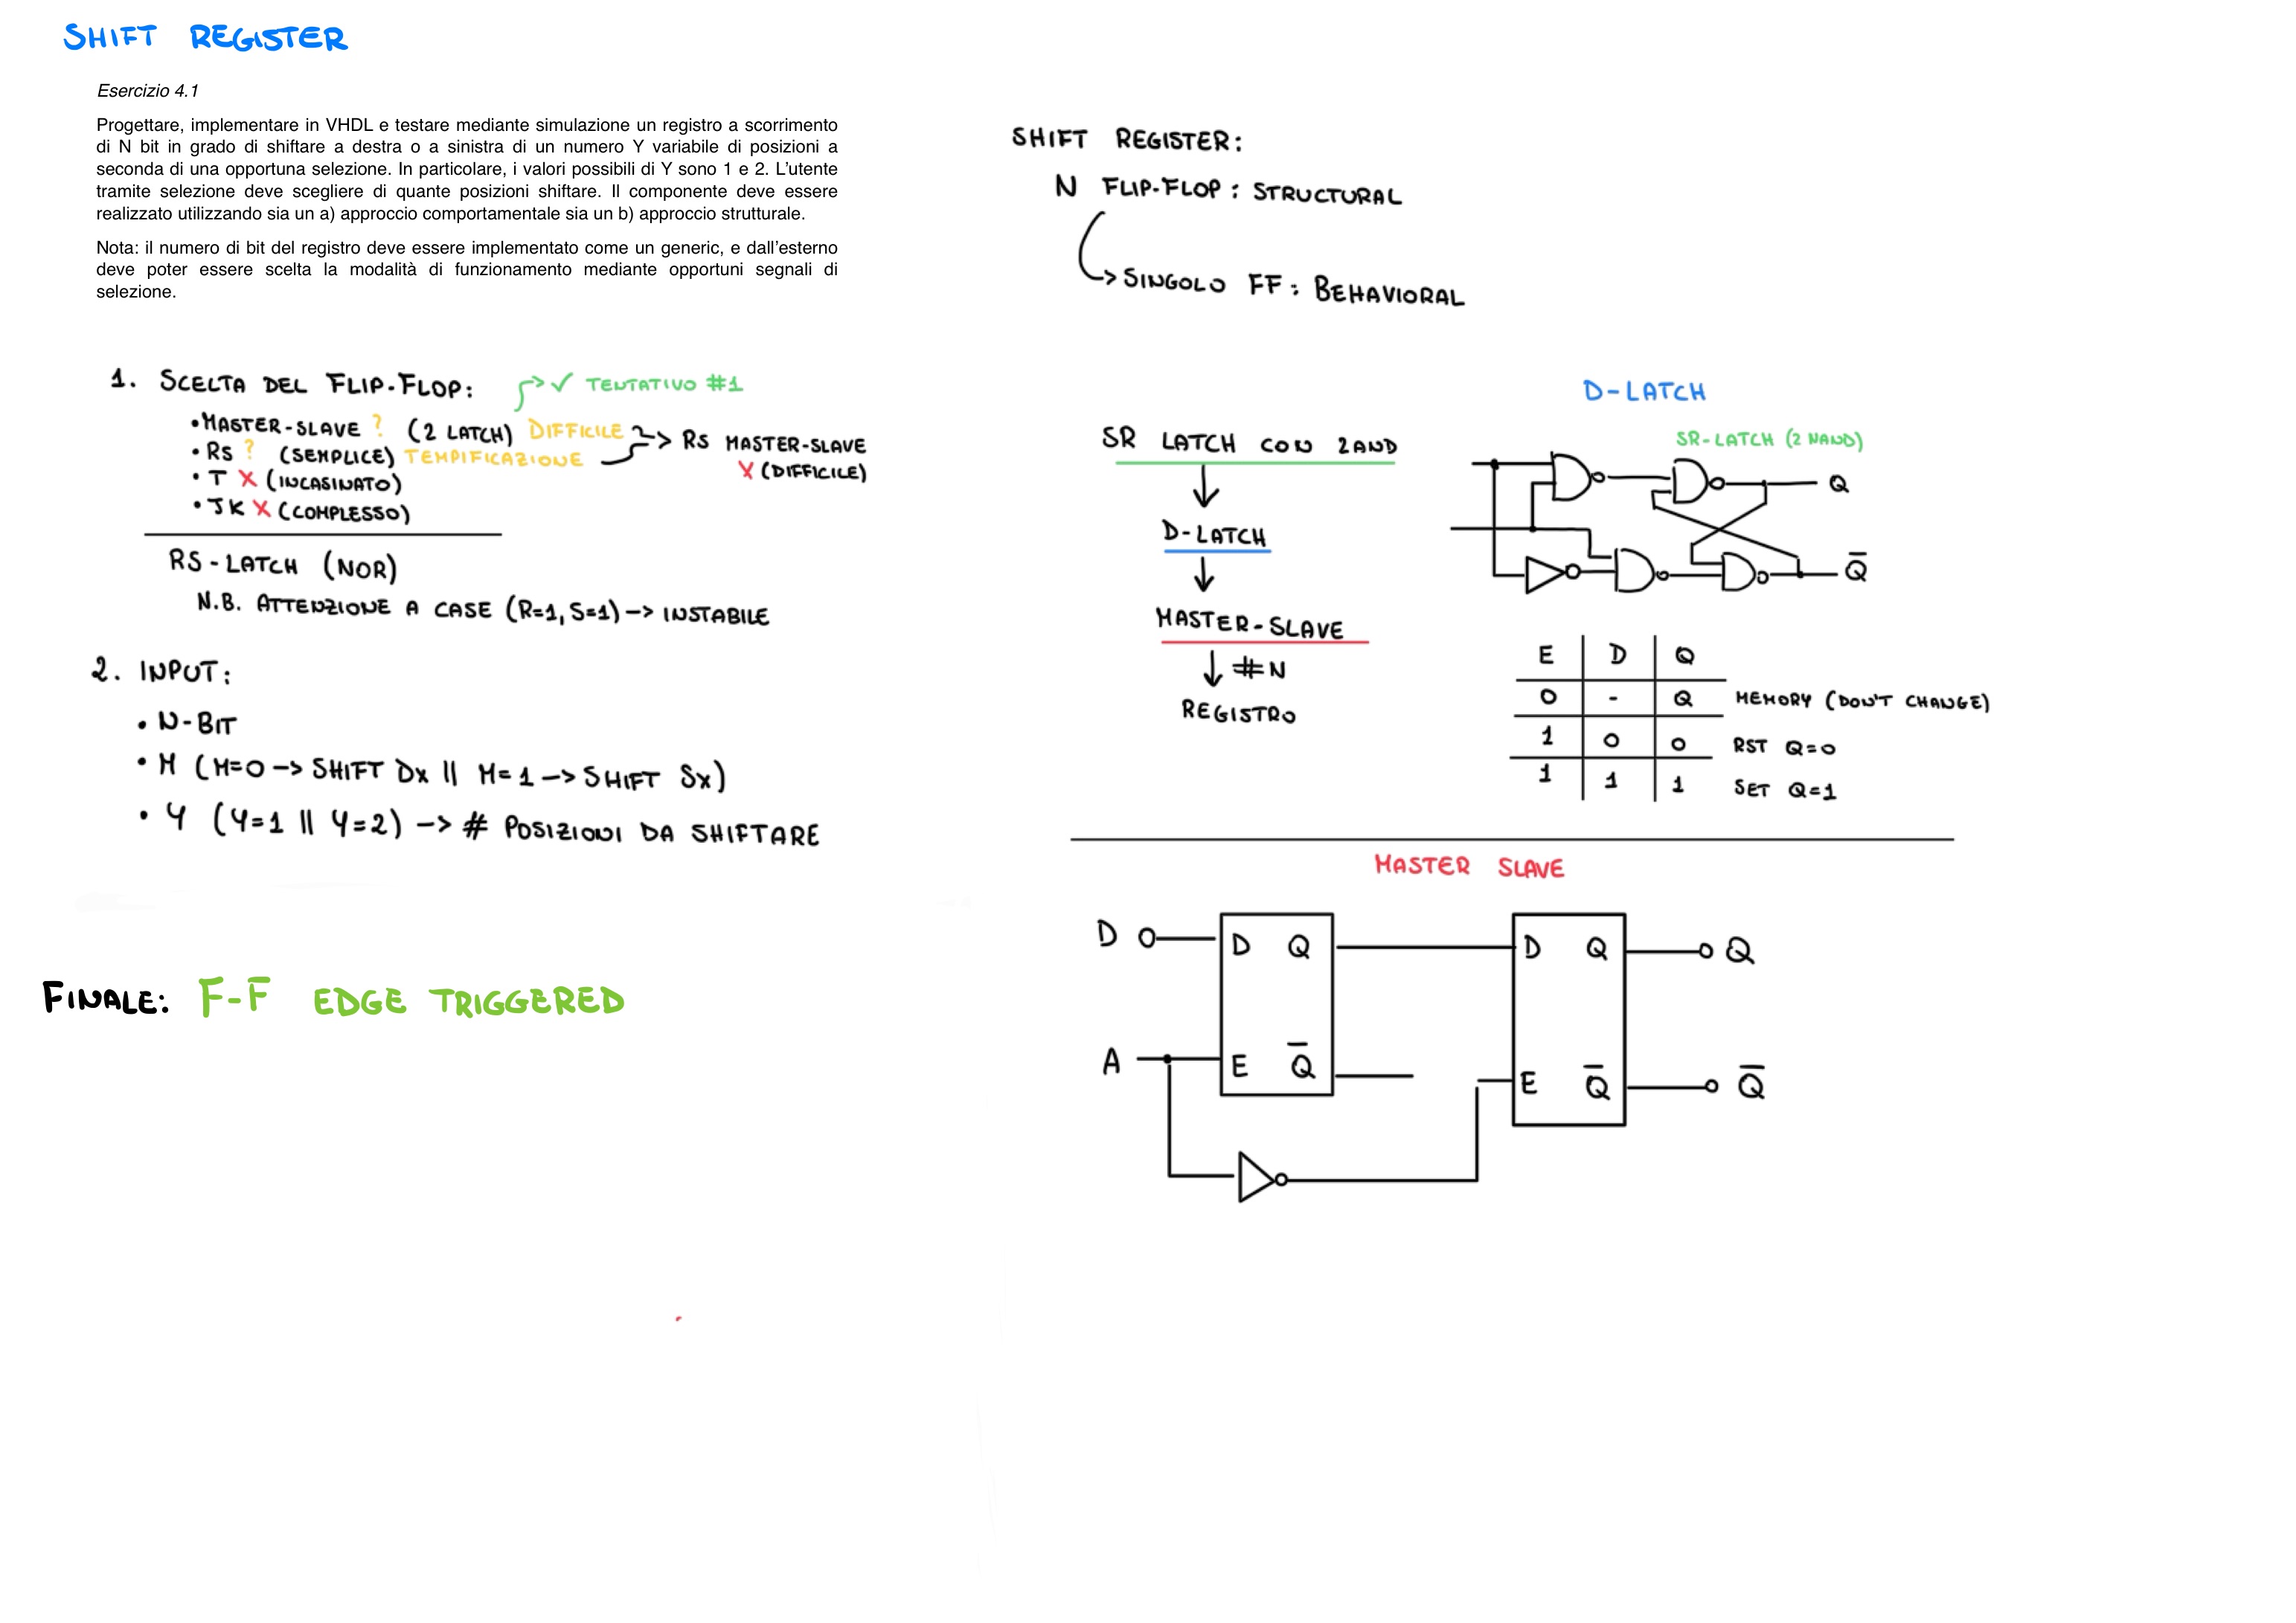 SHIFT REGISTER
Esercizio 4.1
Progettare, implementare in VHDL e testare mediante simulazione un registro a scorrimento
di N bit in grado di shiftare a destra o a sinistra di un numero Y variabile di posizioni a
seconda di una opportuna selezione. In particolare, i valori possibili di Y sono 1 e 2. L'utente
tramite selezione deve scegliere di quante posizioni shiftare. Il componente deve essere
realizzato utilizzando sia un a) approccio comportamentale sia un b) approccio strutturale.
Nota: il numero di bit del registro deve essere implementato come un generic, e dall'esterno
deve poter essere scelta la modalità di funzionamento mediante opportuni segnali di
selezione.
1. SCELTA DEL FLIP-FLOP: -> ✓ TENTATIVO #1
• MASTER-SLAVE ? (2 LATCH) DIFFICILE
• RS ? (SEMPLICE) TEMPIFICAZIONE -> RS MASTER-SLAVE
X (DIFFICILE)
• T X (INCASINATO)
• JK X (COMPLESSO)
RS-LATCH (NOR)
N.B. ATTENZIONE A CASE (R=1, S=1) -> INSTABILE
2. INPUT:
• N-BIT
• M (M=0 -> SHIFT DX || M=1 -> SHIFT SX)
• Y (Y=1 || Y=2) -> # POSIZIONI DA SHIFTARE
FINALE: F-F EDGE TRIGGERED
SHIFT REGISTER:
N FLIP-FLOP: STRUCTURAL
-> SINGOLO FF: BEHAVIORAL
SR LATCH CON 2AND
D-LATCH
MASTER-SLAVE
#N
REGISTRO
D-LATCH
SR-LATCH (2 NAND)
Q
Q̅
E D Q
0 - Q MEMORY (DON'T CHANGE)
1 0 0 RST Q=0
1 1 1 SET Q=1
MASTER SLAVE
D D Q D Q Q
A E Q̅ E Q̅ Q̅